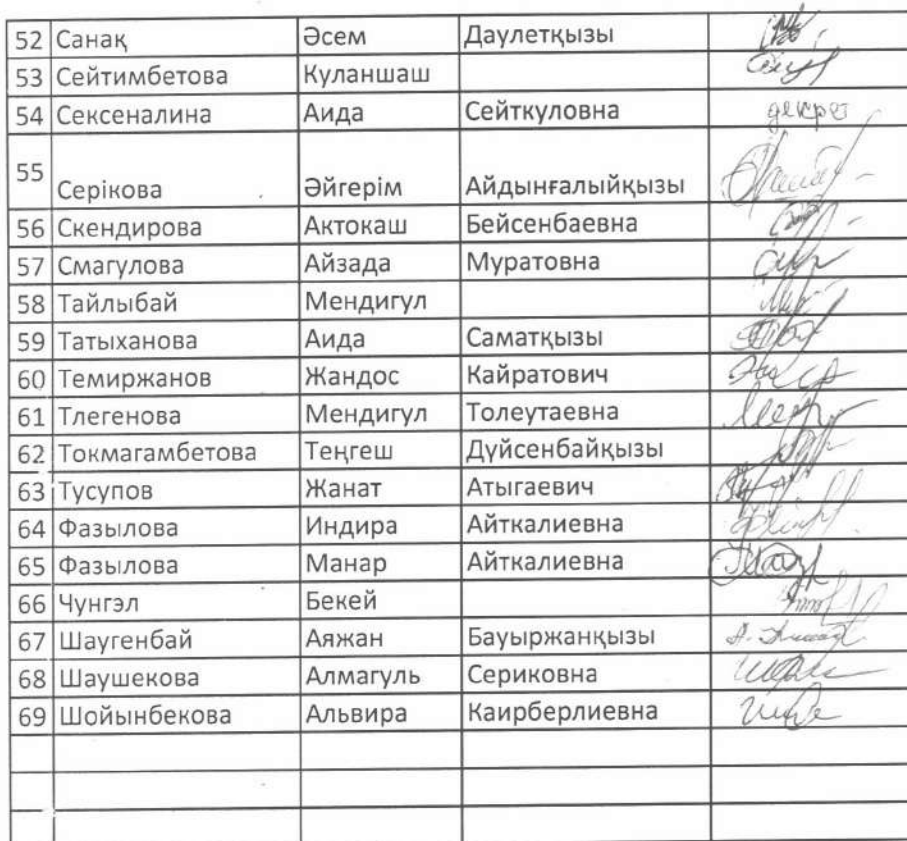 52 Санақ Әсем Даулетқызы
53 Сейтимбетова Куланшаш
54 Сексеналина Аида Сейткуловна декрет
55 Серікова Әйгерім Айдынғалыйқызы
56 Скендирова Актокаш Бейсенбаевна
57 Смагулова Айзада Муратовна
58 Тайлыбай Мендигул
59 Татыханова Аида Саматқызы
60 Темиржанов Жандос Кайратович
61 Тлегенова Мендигул Толеутаевна
62 Токмагамбетова Теңгеш Дүйсенбайқызы
63 Тусупов Жанат Атыгаевич
64 Фазылова Индира Айткалиевна
65 Фазылова Манар Айткалиевна
66 Чунгэл Бекей
67 Шаугенбай Аяжан Бауыржанқызы
68 Шаушекова Алмагуль Сериковна
69 Шойынбекова Альвира Каирберлиевна